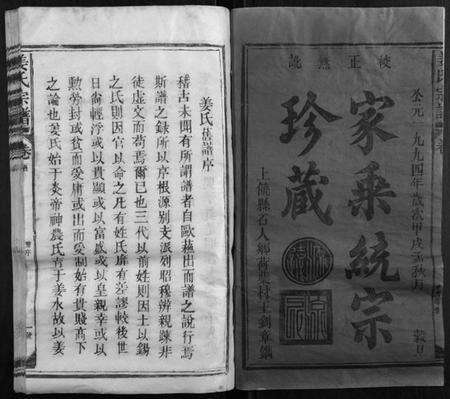 校正無訛
公元一九九四年歲次甲戌孟秋月
家乘統宗
珍藏
上饒縣
姜氏宗譜
卷
姜氏族譜序
稽古未聞有所謂譜者自歐蘇出而譜之說行焉
斯譜之錄所以序根源別支派列昭穆辨親疎非
徒虛文而苟焉爾已也三代以前姓則因土以錫
之氏則因官以命之凡有姓氏靡有差謬較後世
日尚輕浮或以貴顯或以富盛或以皇親宰或以
勳勞封或貧而愛庸或出而愛制始有貴賤高下
之論也姜氏始于炎帝神農氏育于姜水故以姜
姜氏宗譜
卷